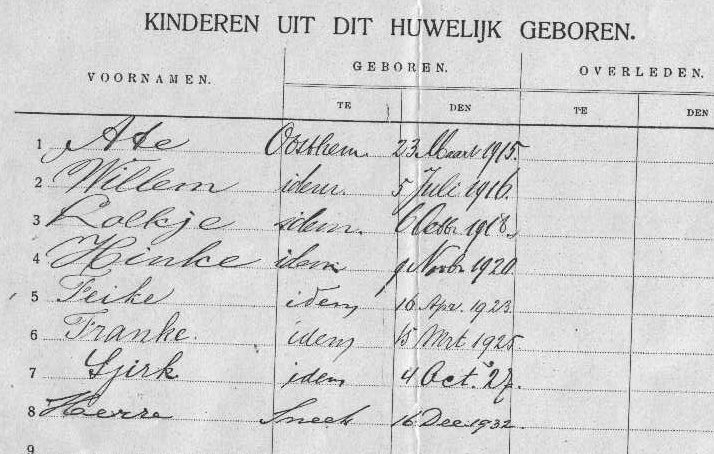 KINDEREN UIT DIT HUWELIJK GEBOREN.
VOORNAMEN. GEBOREN. OVERLEDEN.
TE DEN TE DEN
1 Ate Oosthem. 23 Maart 1915.
2 Willem idem. 5 Juli 1916.
3 Loltje idem. 6 Octbr 1918.
4 Hinke idem 9 Novbr 1920.
5 Feike idem 16 Apr. 1923.
6 Franke. idem 15 Mrt 1925.
7 Sjirk idem 4 Oct. '27.
8 Herre Sneek 16 Dec. 1932.
9